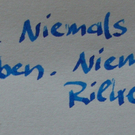 . Niemals
ben. Niem
Rilke